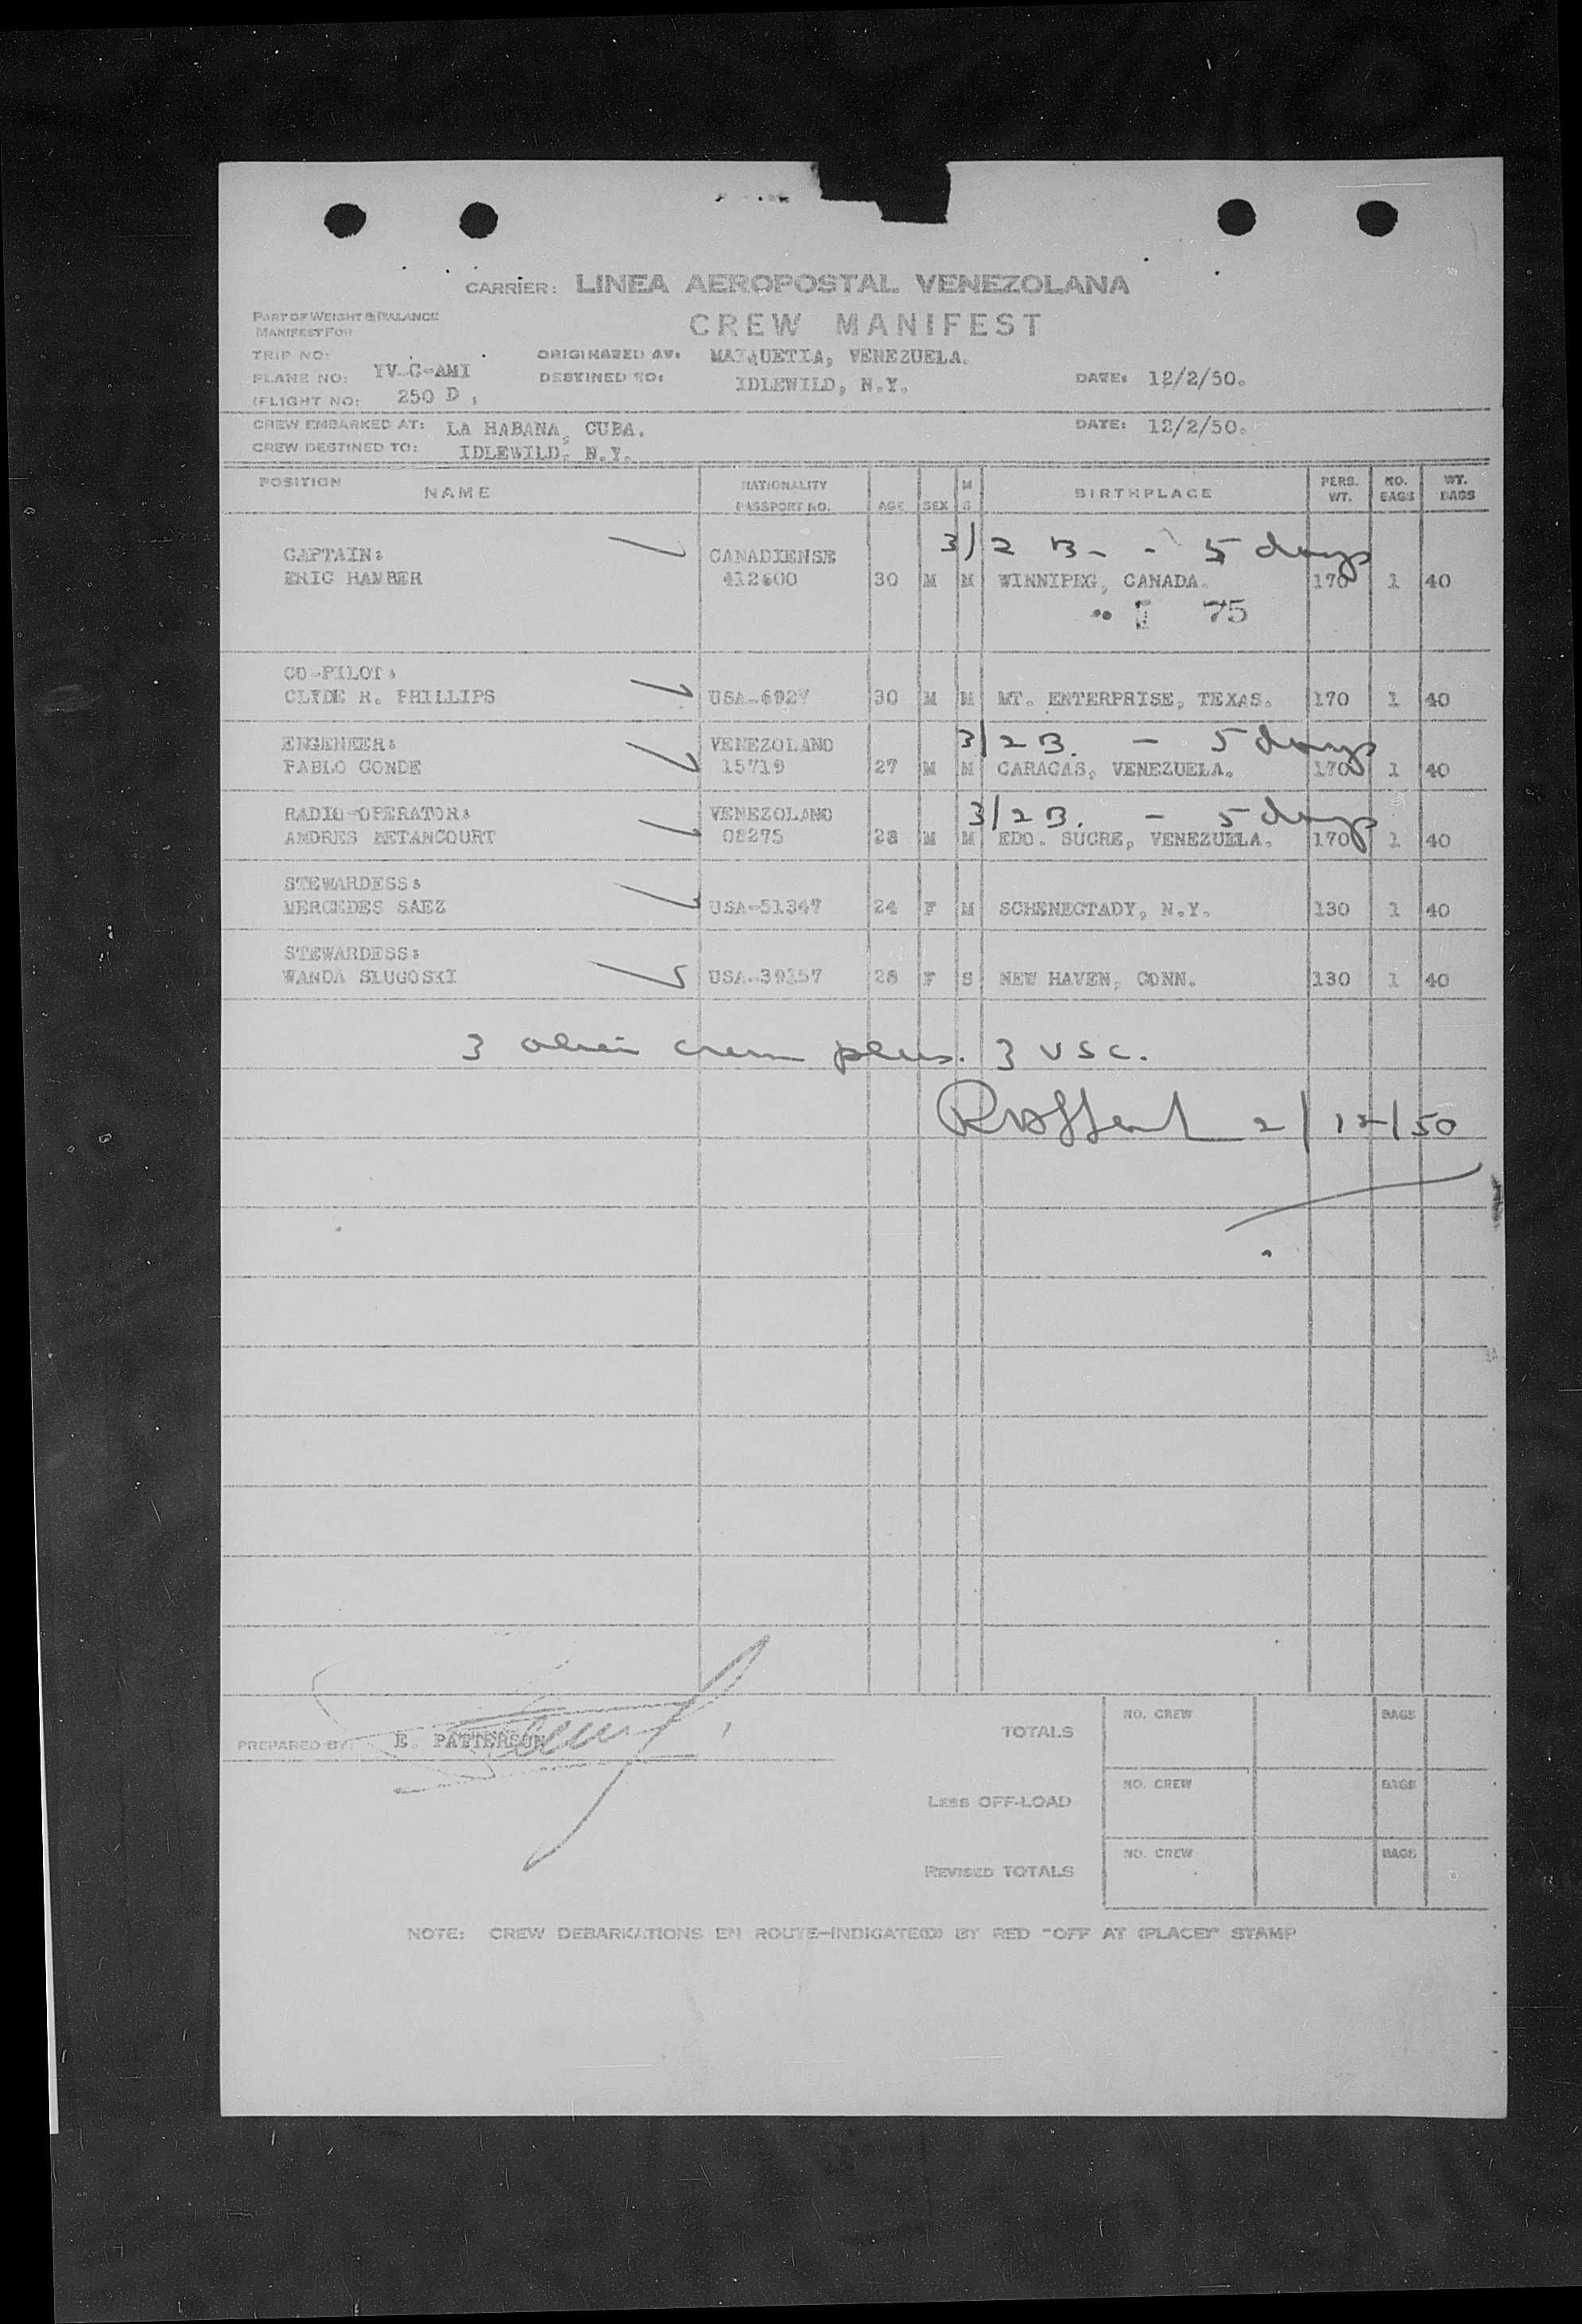 CARRIER: LINEA AEROPOSTAL VENEZOLANA
PART OF WEIGHT & BALANCE
MANIFEST FOR
CREW MANIFEST
TRIP NO:
ORIGINATED AT: MAIQUETIA, VENEZUELA.
PLANE NO: YV-C-AMI
DESTINED TO: IDLEWILD, N.Y.
DATE: 12/2/50.
(FLIGHT NO: 250 D
CREW EMBARKED AT: LA HABANA, CUBA.
DATE: 12/2/50.
CREW DESTINED TO: IDLEWILD, N.Y.
POSITION NAME NATIONALITY PASSPORT NO. AGE SEX M S BIRTHPLACE PERS. WT. NO. BAGS WT. BAGS
3/2 B - - 5 days
CAPTAIN: CANADIENSE
ERIC HAMBER 30 M M WINNIPEG, CANADA. 170 1 40
75
CO-PILOT:
CLYDE R. PHILLIPS USA-6927 30 M M MT. ENTERPRISE, TEXAS. 170 1 40
ENGENEER: VENEZOLANO 3/2 B. - 5 days
PABLO CONDE 15719 27 M M CARACAS, VENEZUELA. 170 1 40
RADIO-OPERATOR: VENEZOLANO 3/2 B. - 5 days
ANDRES BETANCOURT 08275 28 M M EDO. SUCRE, VENEZUELA. 170 1 40
STEWARDESS:
MERCEDES SAEZ USA-51347 24 F M SCHENECTADY, N.Y. 130 1 40
STEWARDESS:
WANDA SLUGOSKI USA-39157 28 F S NEW HAVEN, CONN. 130 1 40
3 alien crew plus. 3 USC.
2/12/50
PREPARED BY: E. PATTERSON
TOTALS NO. CREW BAGS
LESS OFF-LOAD NO. CREW BAGS
REVISED TOTALS NO. CREW BAGS
NOTE: CREW DEBARKATIONS EN ROUTE-INDICATE(D) BY RED "OFF AT (PLACE)" STAMP